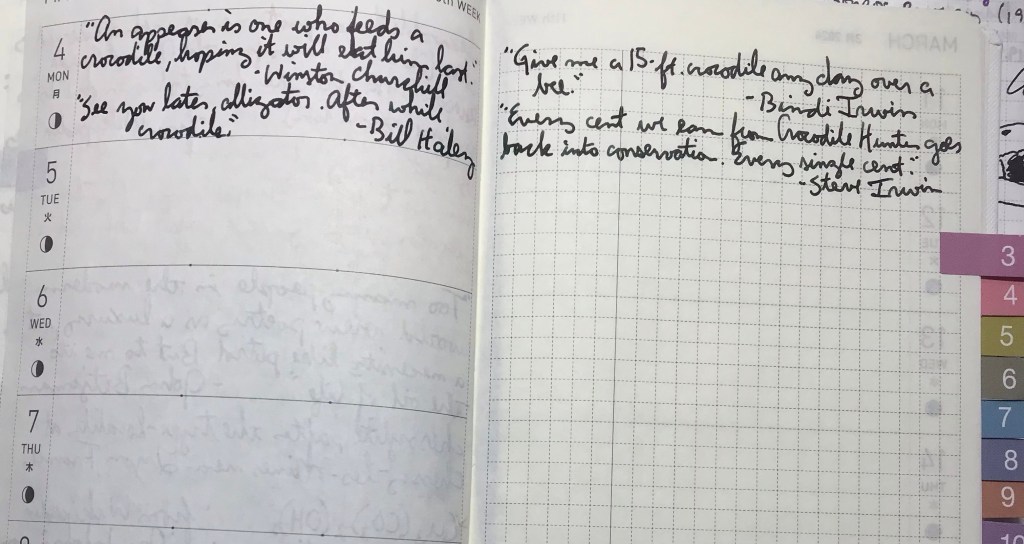 WEEK
4
MON
月
"An appeaser is one who feeds a
crocodile, hoping it will eat him last."
-Winston Churchill
"See you later, alligator. After while
crocodile."
-Bill Haley
5
TUE
火
6
WED
水
7
THU
木
"Give me a 15-ft. crocodile any day over a
bee."
-Bindi Irwin
"Every cent we earn from Crocodile Hunter goes
back into conservation. Every single cent."
-Steve Irwin
(19
3
4
5
6
7
8
9
10